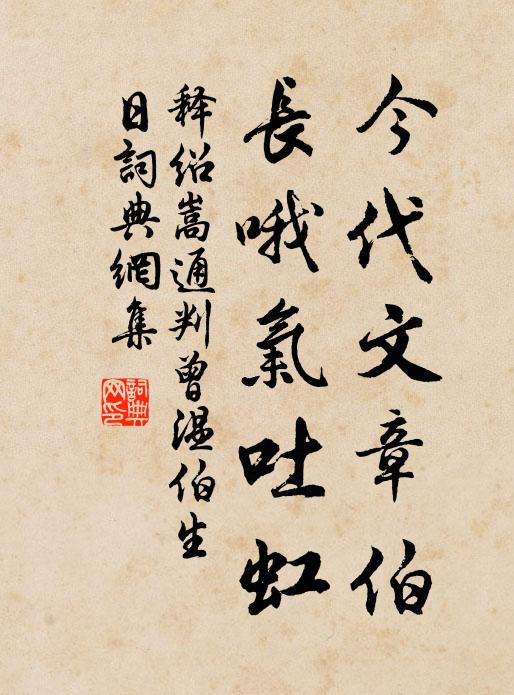 今代文章伯
長哦氣吐虹
释紹嵩通判曾温伯生
日詞典網集
詞典网印